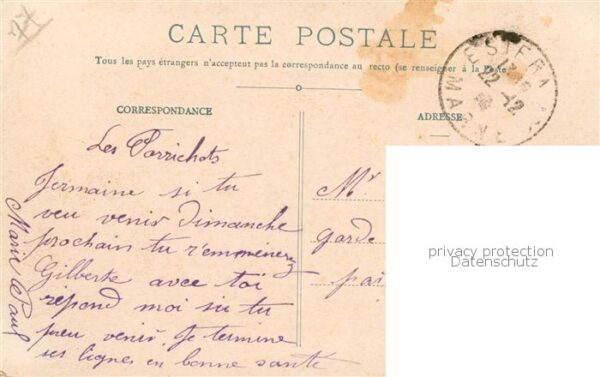 77
CARTE POSTALE
Tous les pays étrangers n'acceptent pas la correspondance au recto (se renseigner à la Poste)
CORRESPONDANCE
ADRESSE
ESTERNAY
22 -12
MARNE
Les Parrichets
Jermaine si tu
veu venir Dimanche
prochain tu r'emmènerez
Gilberte avec toi
répond moi si tu
peu venir. Je termine
ses lignes en bonne santé
Marie Paul
Mr
garde
pai
privacy protection
Datenschutz